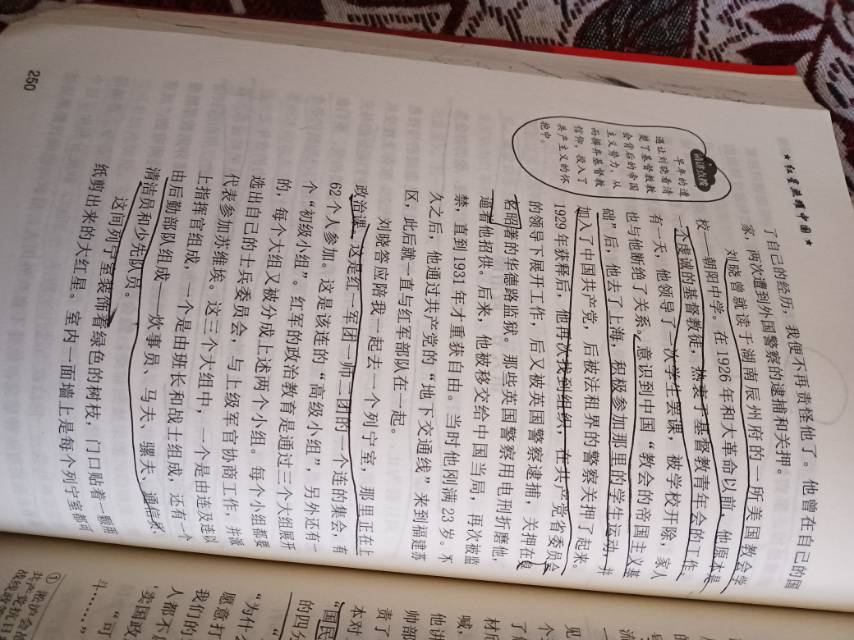 ★红星照耀中国★
了自己的经历，我便不再责怪他了。他曾在自己的国
家，两次遭到外国警察的逮捕和关押。
刘晓曾就读于湖南辰州府的一所美国教会学
校——朝阳中学。在1926年和大革命以前，他原本是
一个虔诚的基督教徒，热衷于基督教青年会的工作。
有一天，他领导了一次学生罢课，被学校开除，家人
也与他断绝了关系。意识到中国“教会的帝国主义基
础”后，他去了上海，积极参加那里的学生运动，并
加入了中国共产党，后被法租界的警察关押了起来。
1929年获释后，他再次找到组织，在共产党省委员会
的领导下展开工作，后又被英国警察逮捕，关押在臭
名昭著的华德路监狱。那些英国警察用电刑折磨他，
逼着他招供。后来，他被移交给中国当局，再次被监
禁，直到1931年才重获自由。当时他刚满23岁。不
久之后，他通过共产党的“地下交通线”来到福建苏
区，此后就一直与红军部队在一起。
刘晓答应陪我一起去一个列宁室，那里正在上
政治课。这是红一军团一师二团的一个连的集会，有
62个人参加。这是该连的“高级小组”，另外还有一
个“初级小组”。红军的政治教育是通过三个大组展开
的，每个大组又被分成上述两个小组。每个小组都要
选出自己的士兵委员会，与上级军官协商工作，并派
代表参加苏维埃。这三个大组中，一个是由连及连以
上指挥官组成，一个是由班长和战士组成，还有一个
由后勤部队组成——炊事员、马夫、骡夫、通信员、
清洁员和少先队员。
这间列宁室装饰着绿色的树枝，门口贴着一颗用
纸剪出来的大红星。室内一面墙上是每个列宁室都可
250
精读点拨
早年的遭
遇让刘晓看清
楚了基督教教
会背后的帝国
主义势力，从
而摒弃基督教
信仰，投入了
共产主义的怀
抱中。